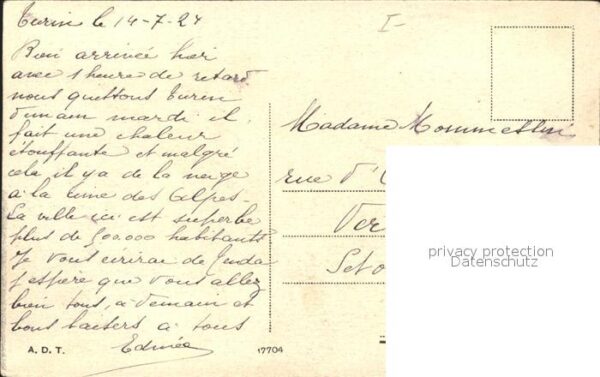 Turin le 14-7-24
I-
Bon arrivée hier
avec 1 heure de retard
nous quittons Turin
demain mardi il
fait une chaleur
étouffante et malgré
cela il y a de la neige
à la cime des Alpes-
La ville ici est superbe
plus de 500.000 habitants
Je vous écrirai de
j'espère que vous allez
bien tous, à demain et
bons baisers à tous
Edmée
Madame Mommessin
rue d'
Ver
Set o
privacy protection
Datenschutz
A. D. T.
17704